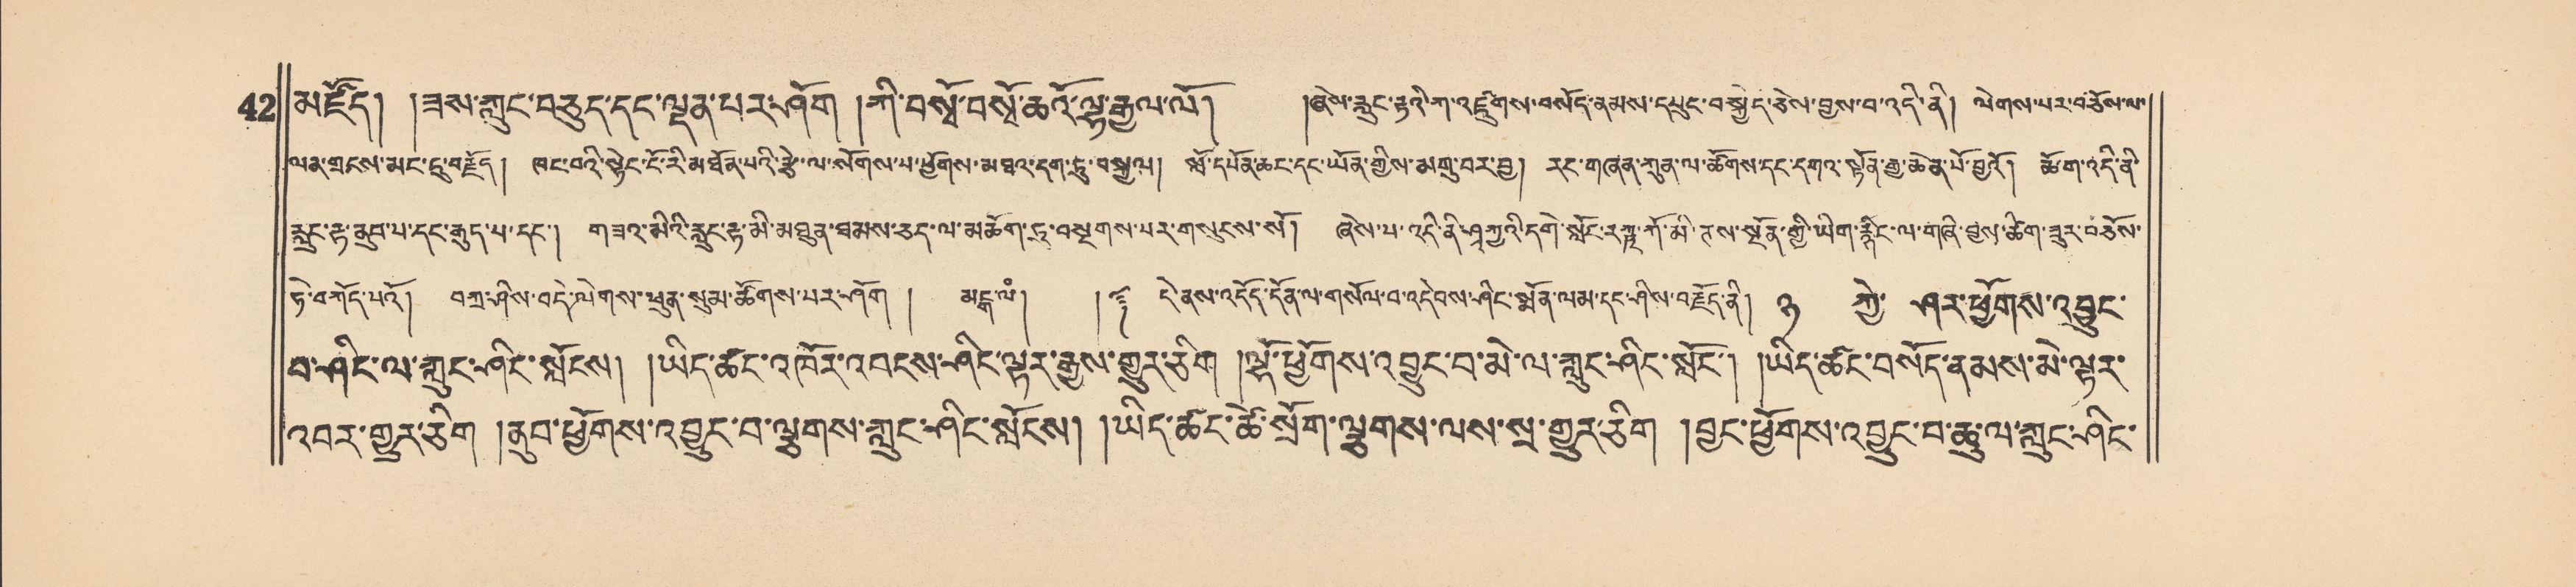 42 མཛོད། །ཟས་ཀླུང་བཅུད་དང་ལྡན་པར་ཤོག །ཀི་བསྭོ་བསྭོ་ཆའོ་ལྷ་རྒྱལ་ལོ། །ཞེས་རླུང་རྟའི་ཀ་འཛུགས་བསོད་ནམས་དཔུང་བསྐྱེད་ཅེས་བྱས་བ་འདི་ནི། ལེགས་པར་བཅོས་ལ་
ལན་གྲངས་མང་དུ་བརྗོད། ཁང་བའི་སྟེང་ངོ་རི་མཐོན་པའི་རྩེ་ལ་སོགས་པ་ཕྱོགས་མཐའ་དག་ཏུ་བསྒྱལ། སློ་དཔོན་ཆང་དང་ཡོན་གྱིས་མགུ་བར་བྱ། རང་གཞན་ཀུན་ལ་ཚོགས་དང་དགའ་སྟོན་རྒྱ་ཆེན་པོ་བྱའོ། ཆོག་འདི་ནི་
རླུང་རྟ་ནུབ་པ་དང་རྒུད་པ་དང་། གཟའ་མིའི་རླུང་རྟ་མི་མཐུན་ཐམས་ཅད་ལ་མཆོག་ཏུ་བསྔགས་པར་གསུངས་སོ། ཞེས་པ་འདི་ནི་ཤཱཀྱའི་དགེ་སློང་རཏྣ་ཀོ་མི་ཏས་སྔོན་གྱི་ཡིག་རྙིང་ལ་གཞི་བྱས་ཚིག་ཟུར་བཅོས་
ཏེ་བཀོད་པའོ། བཀྲ་ཤིས་བདེ་ལེགས་ཕུན་སུམ་ཚོགས་པར་ཤོག ། མངྒ་ལཾ། །༈ དེ་ནས་འདོད་དོན་ལ་གསོལ་བ་འདེབས་ཤིང་སྨོན་ལམ་དང་ཤིས་བརྗོད་ནི། ༣ ཀྱེ་ ཤར་ཕྱོགས་འབྱུང་
བ་ཤིང་ལ་ཀླུང་ཤིང་སློངས། །ཡིད་ཚང་འཁོར་འབངས་ཤིང་ལྟར་རྒྱས་གྱུར་ཅིག །ལྷོ་ཕྱོགས་འབྱུང་བ་མེ་ལ་ཀླུང་ཤིང་སློང་། །ཡིད་ཚང་བསོད་ནམས་མེ་ལྟར་
འབར་གྱུར་ཅིག །ནུབ་ཕྱོགས་འབྱུང་བ་ལྕགས་ཀླུང་ཤིང་སློངས། །ཡིད་ཚང་ཚེ་སྲོག་ལྕགས་ལས་སྲ་གྱུར་ཅིག །བྱང་ཕྱོགས་འབྱུང་བ་ཆུ་ལ་ཀླུང་ཤིང་